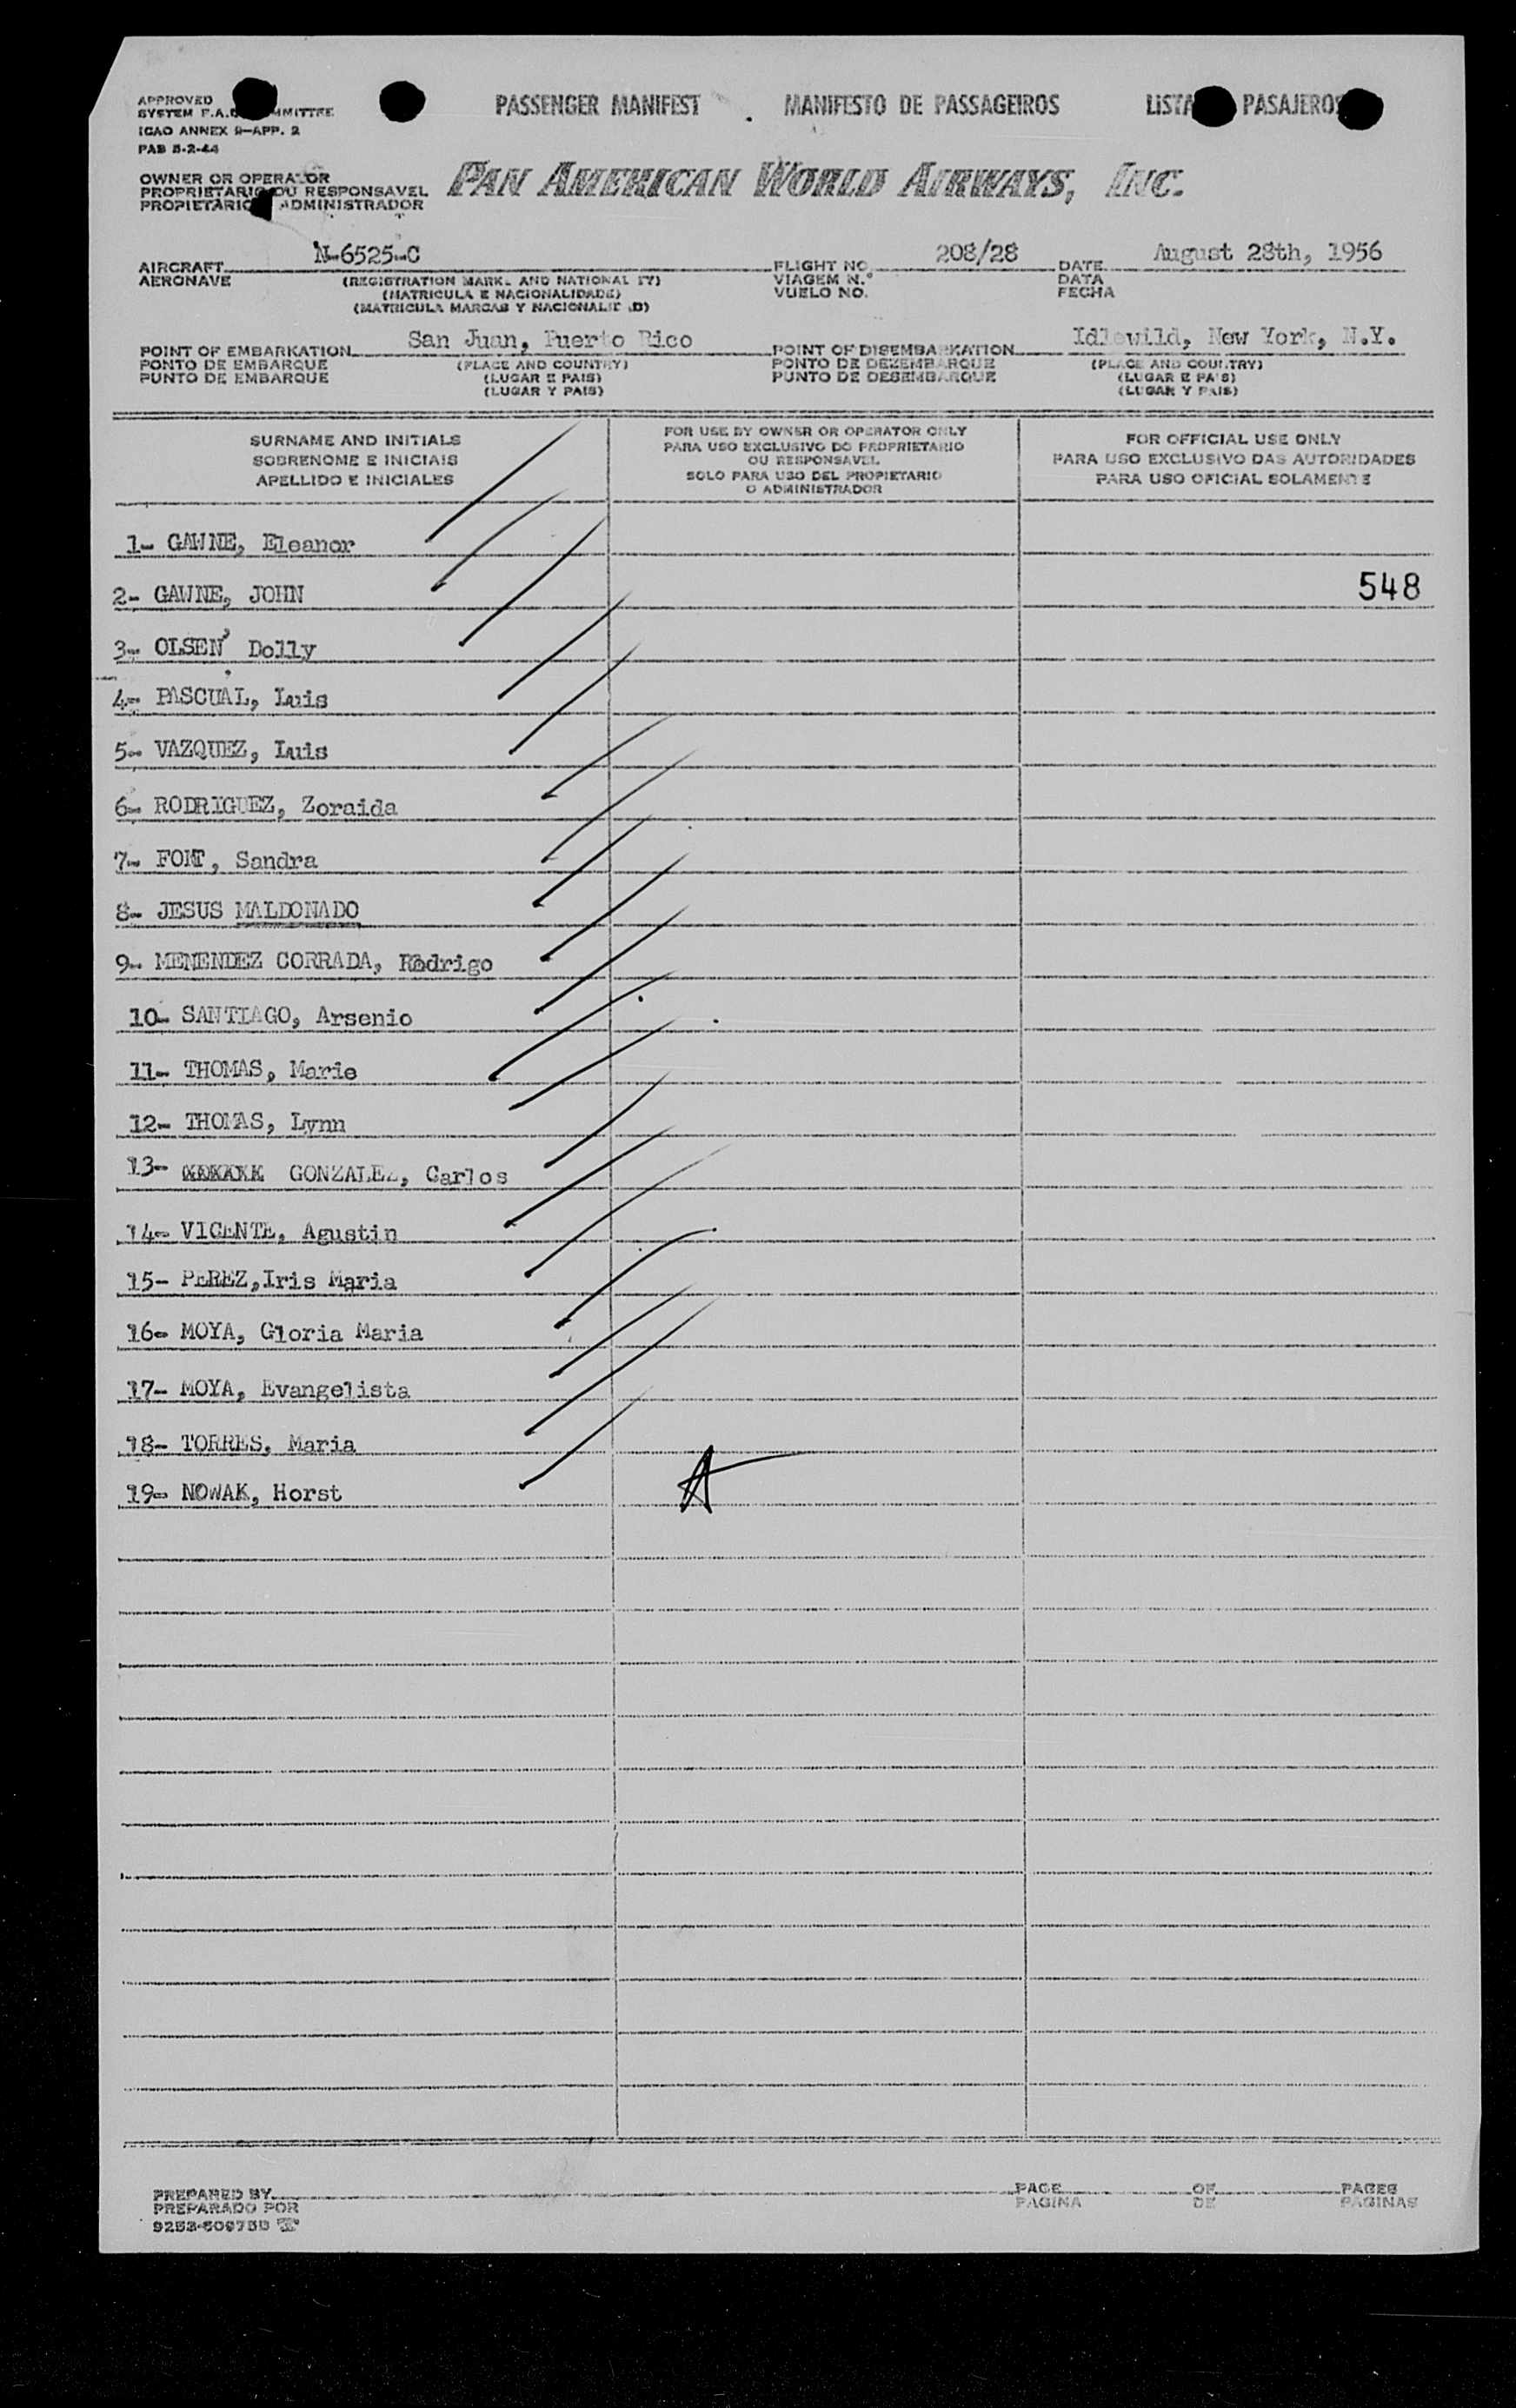 PASSENGER MANIFEST MANIFESTO DE PASSAGEIROS LISTA PASAJEROS
APPROVED
SYSTEM F.A.
ICAO ANNEX 9-APP. 2
PAB 5-2-44
OWNER OR OPERATOR
PROPRIETARIO OU RESPONSAVEL
PROPIETARIO ADMINISTRADOR
PAN AMERICAN WORLD AIRWAYS, INC.
AIRCRAFT N-6525-C FLIGHT NO. 208/28 DATE August 28th, 1956
AERONAVE (REGISTRATION MARKS AND NATIONALITY) VIAGEM N.º DATA
(MATRICULA E NACIONALIDADE) VUELO NO. FECHA
(MATRICULA MARCAS Y NACIONALIDAD)
POINT OF EMBARKATION San Juan, Puerto Rico POINT OF DISEMBARKATION Idlewild, New York, N.Y.
PONTO DE EMBARQUE (PLACE AND COUNTRY) PONTO DE DEZEMBARQUE (PLACE AND COUNTRY)
PUNTO DE EMBARQUE (LUGAR E PAIS) PUNTO DE DESEMBARQUE (LUGAR E PAIS)
(LUGAR Y PAIS) (LUGAR Y PAIS)
SURNAME AND INITIALS
SOBRENOME E INICIAIS
APELLIDO E INICIALES
FOR USE BY OWNER OR OPERATOR ONLY
PARA USO EXCLUSIVO DO PROPRIETARIO
OU RESPONSAVEL
SOLO PARA USO DEL PROPIETARIO
O ADMINISTRADOR
FOR OFFICIAL USE ONLY
PARA USO EXCLUSIVO DAS AUTORIDADES
PARA USO OFICIAL SOLAMENTE
1- GAWNE, Eleanor
2- GAWNE, JOHN 548
3- OLSEN, Dolly
4- PASCUAL, Luis
5- VAZQUEZ, Luis
6- RODRIGUEZ, Zoraida
7- FONT, Sandra
8- JESUS MALDONADO
9- MENENDEZ CORRADA, Rodrigo
10- SANTIAGO, Arsenio
11- THOMAS, Marie
12- THOMAS, Lynn
13- GONZALEZ, Carlos
14- VICENTE, Agustin
15- PEREZ,Iris Maria
16- MOYA, Gloria Maria
17- MOYA, Evangelista
18- TORRES, Maria
19- NOWAK, Horst A
PREPARED BY PAGE OF PAGES
PREPARADO POR PAGINA DE PAGINAS